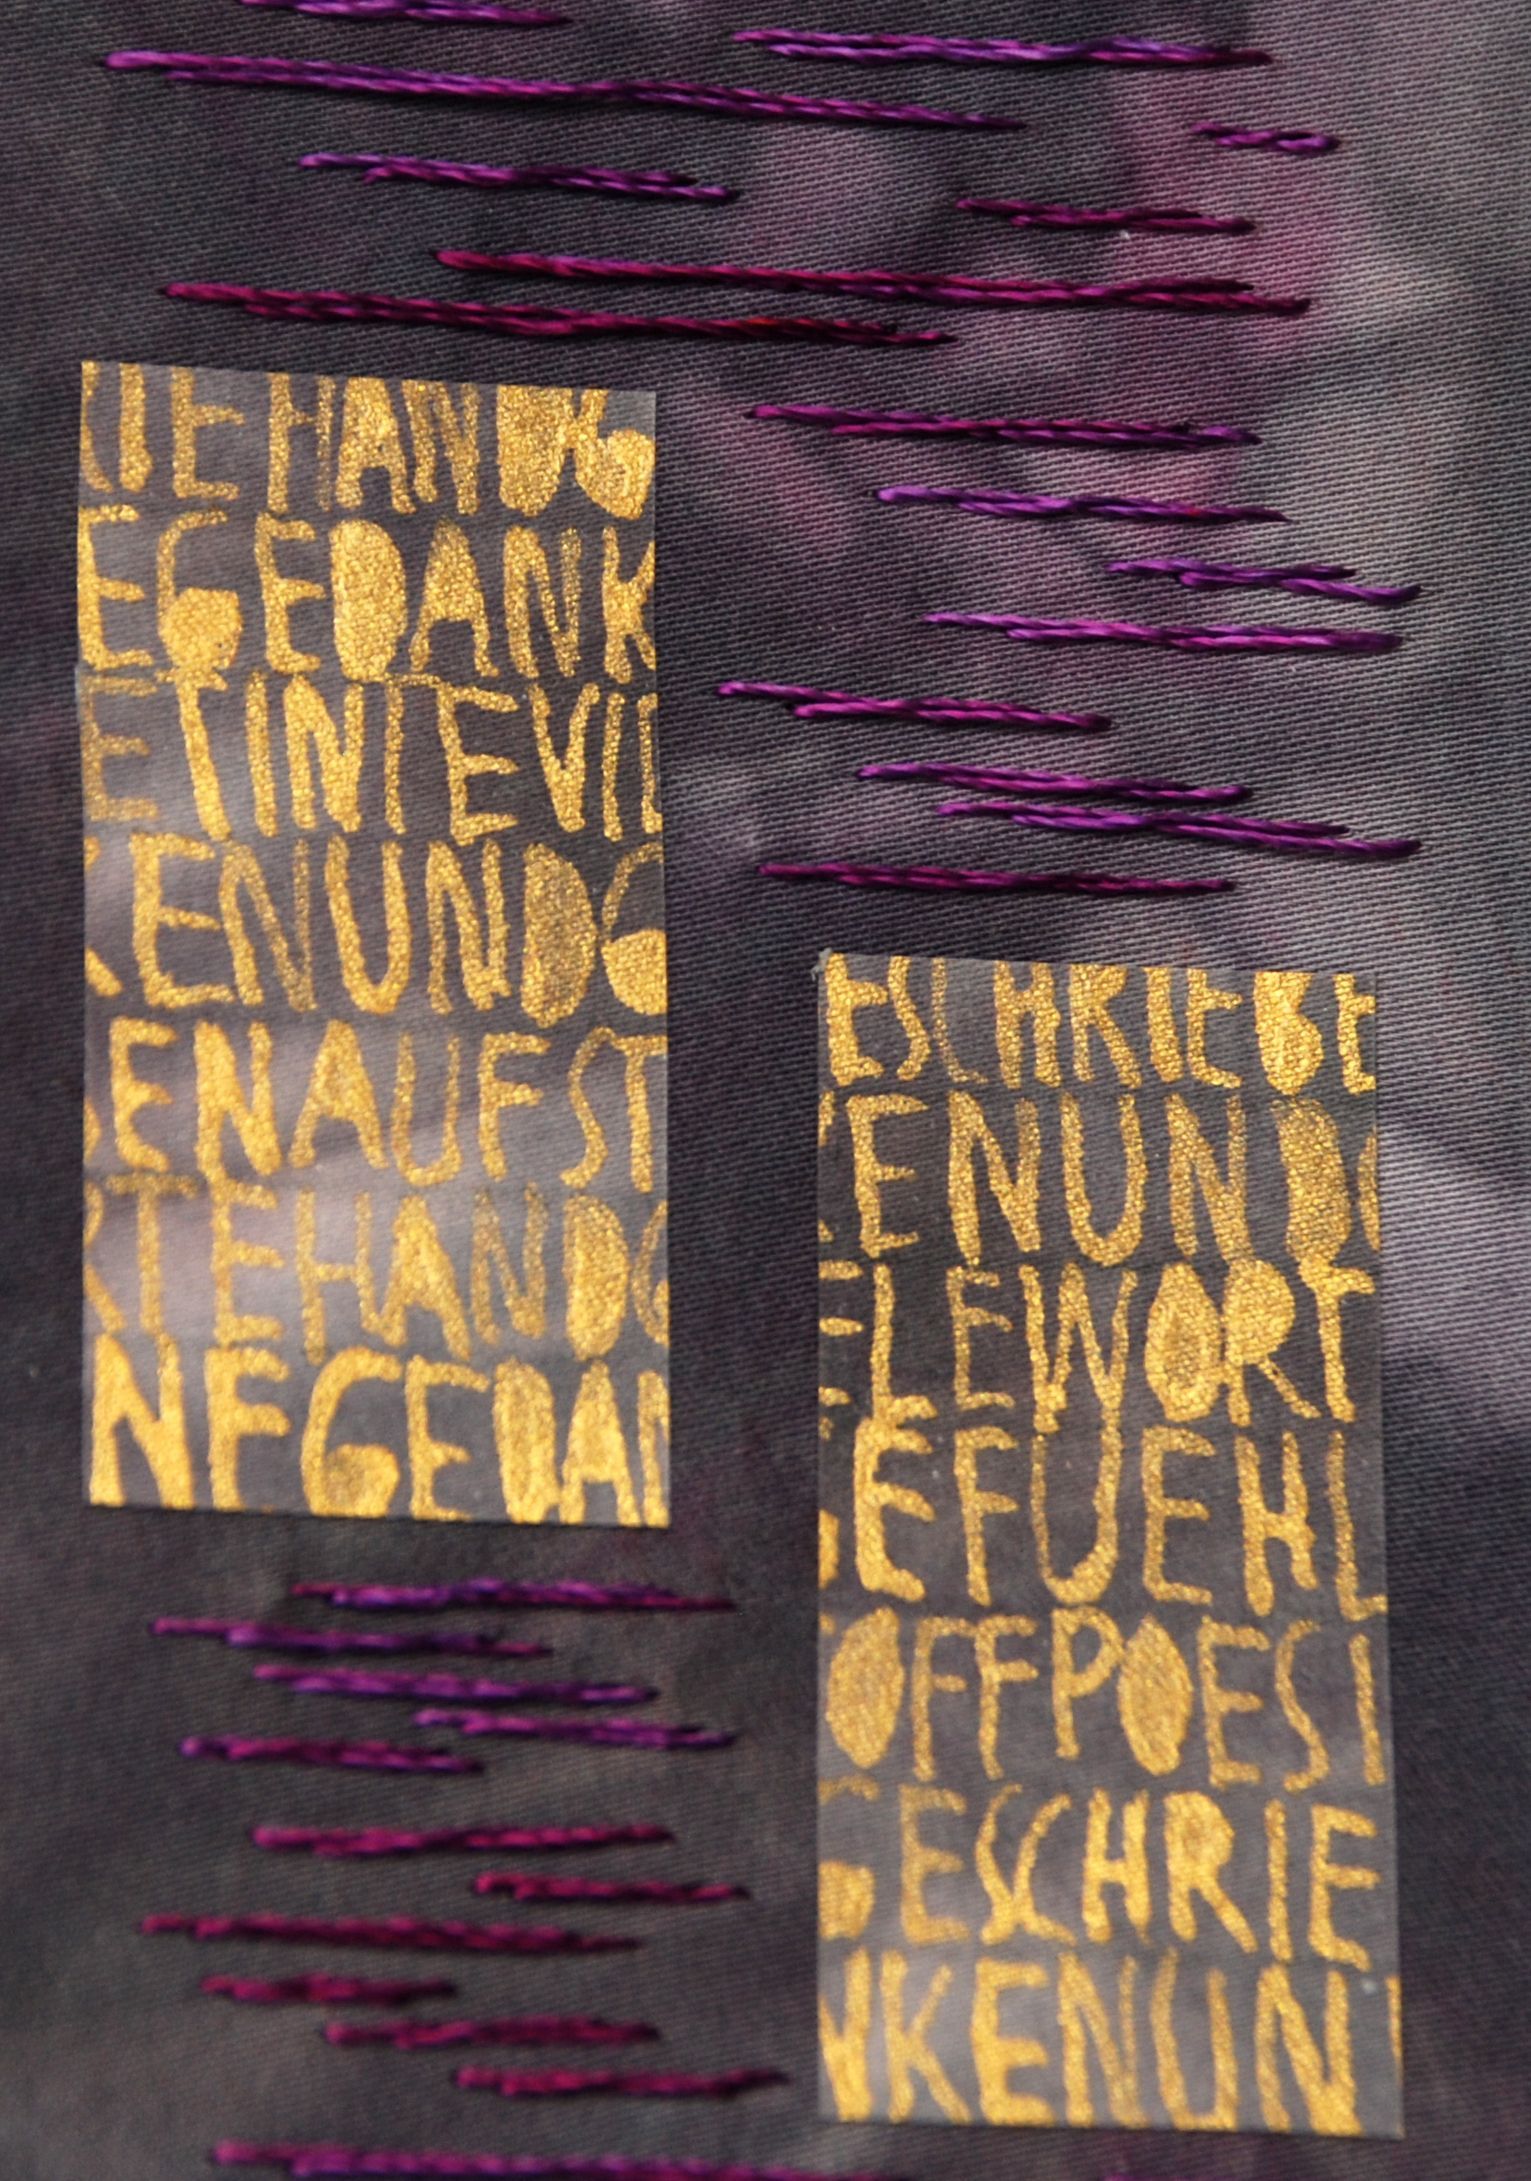 RTEHANDG
EGEDANK
ETINTEVIL
KENUNDG
BENAUFST
RTEHANDG
NEGEDAN
ESCHRIEBE
KENUNDG
ELEWORT
GEFUEHL
TOFFPOESI
GESCHRIE
NKENUN